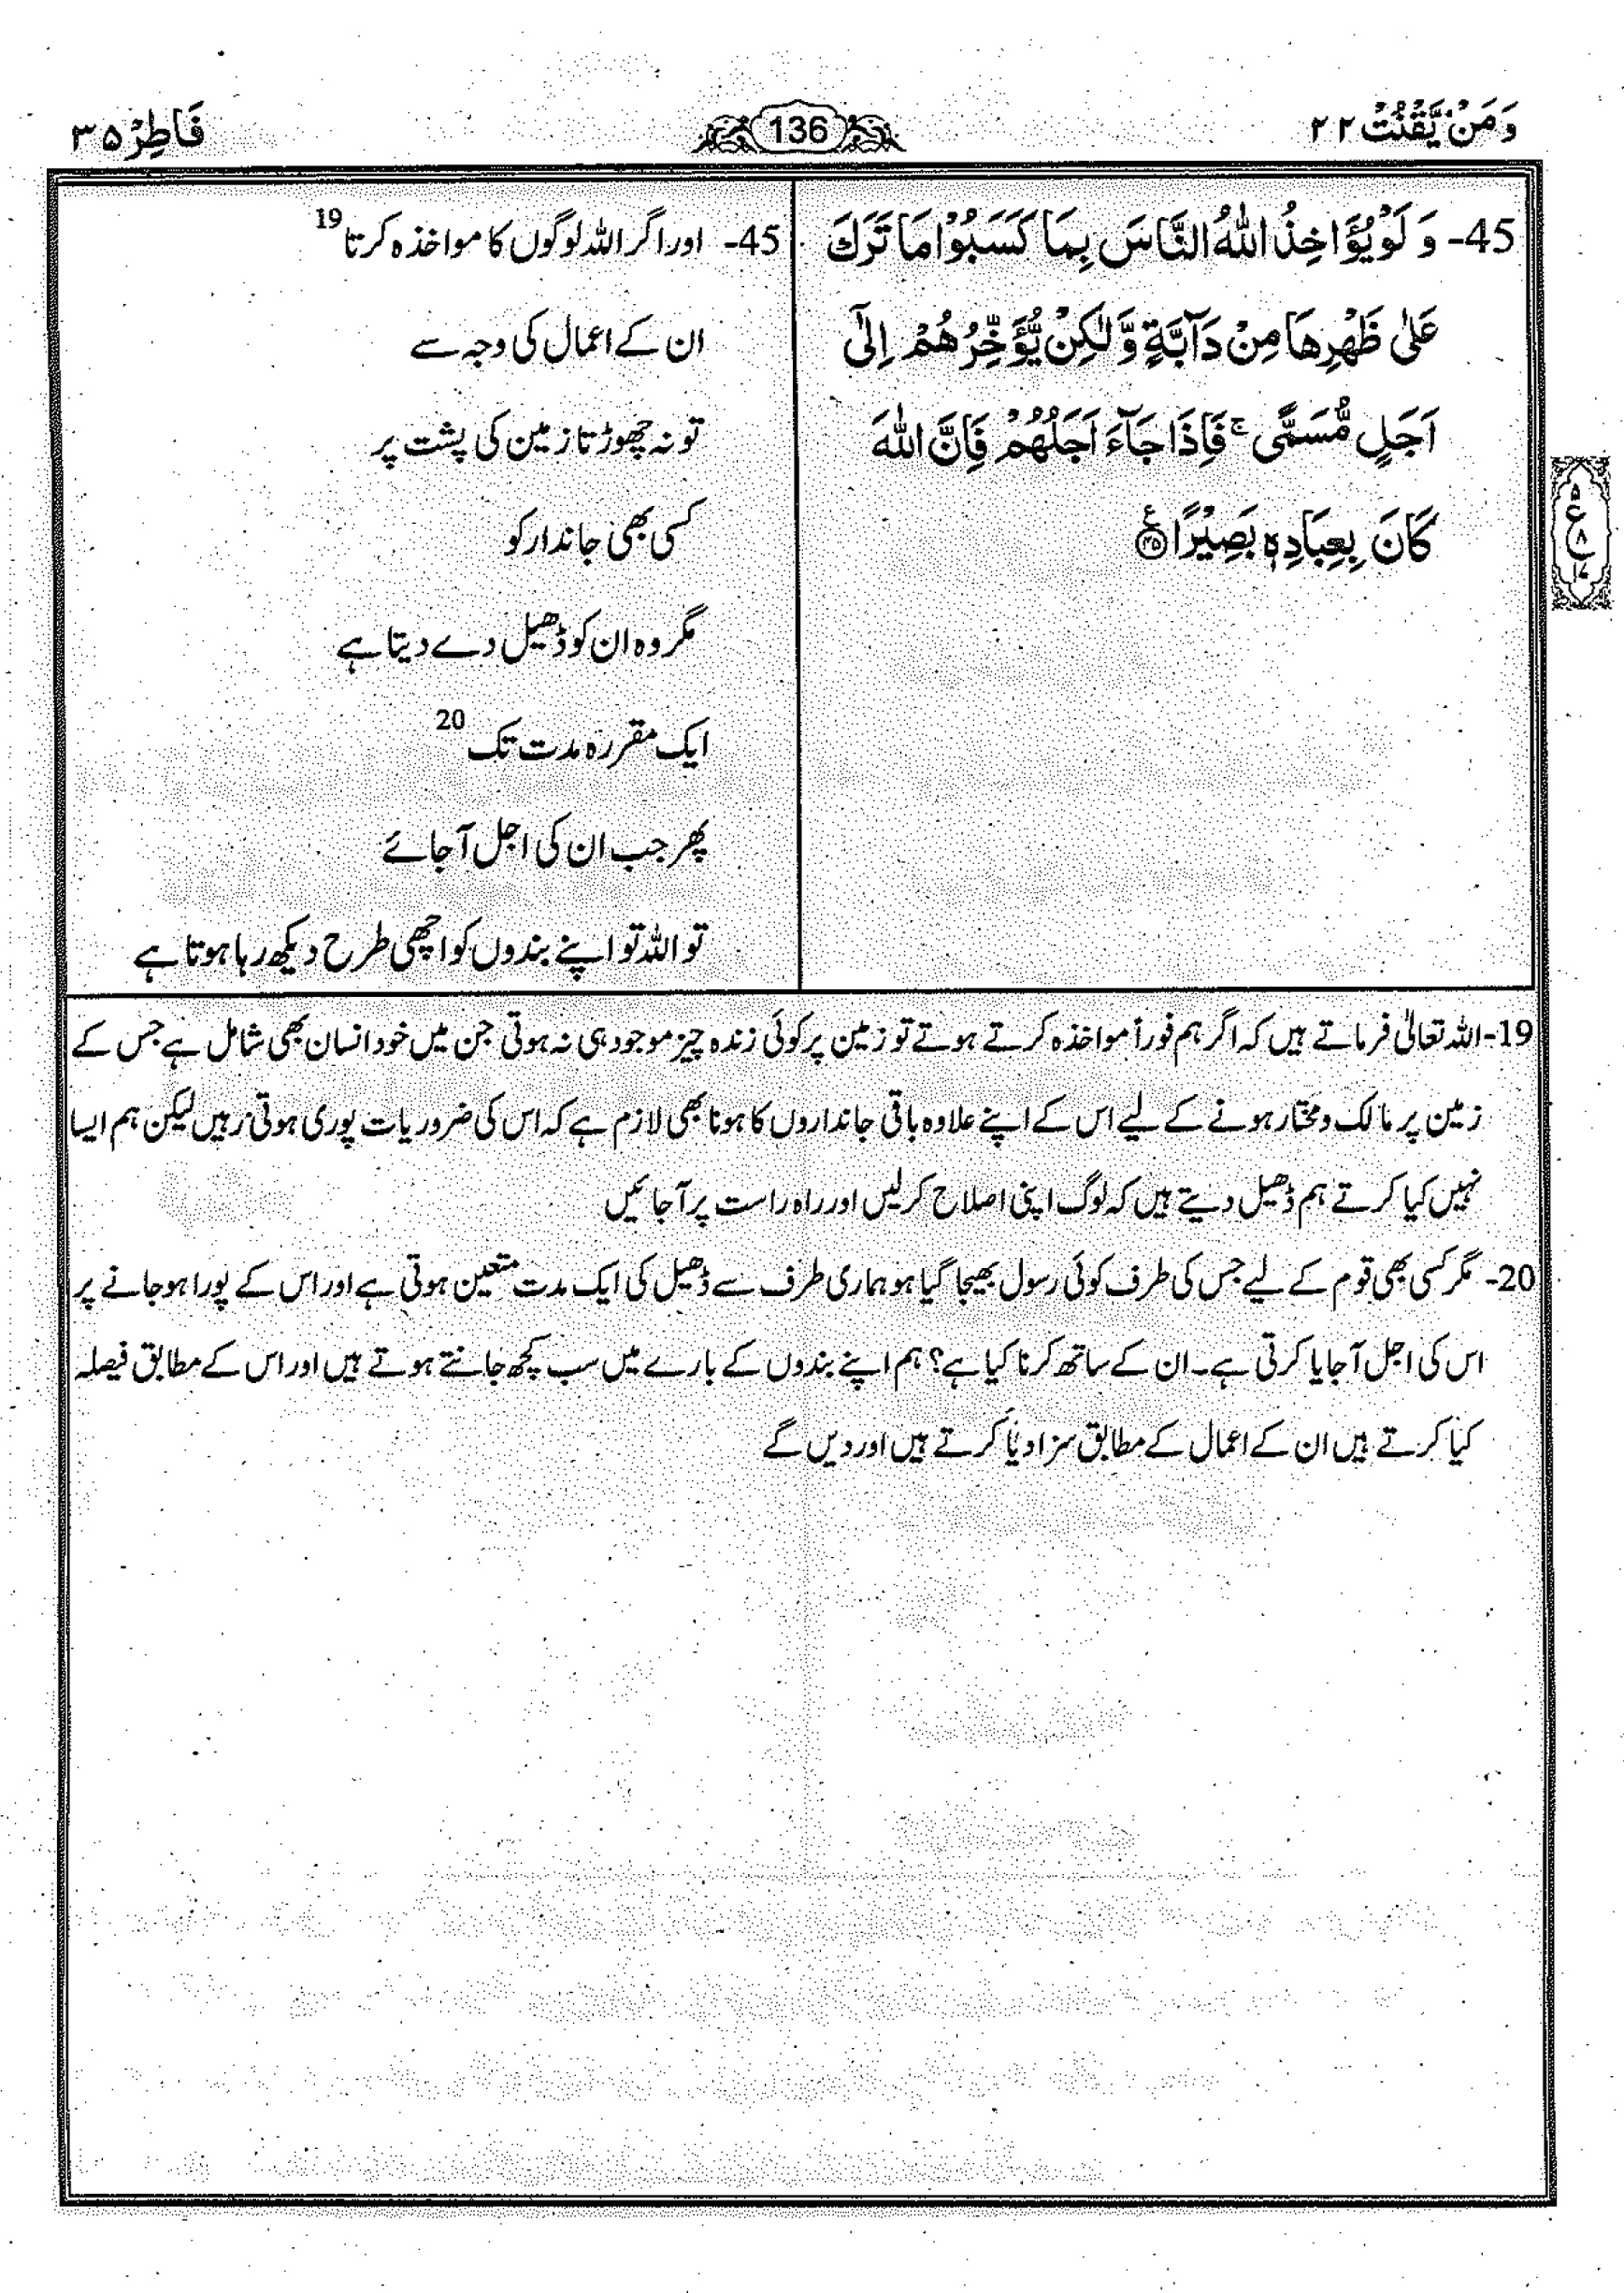 وَمَنْ يَّقْنُتْ ٢٢
136
فَاطِرْ ٣٥
45- وَ لَوْ يُؤَاخِذُ اللّٰهُ النَّاسَ بِمَا كَسَبُوْا مَا تَرَكَ
عَلٰى ظَهْرِهَا مِنْ دَآبَّةٍ وَّلٰكِنْ يُّؤَخِّرُهُمْ اِلٰٓى
اَجَلٍ مُّسَمًّى ۚ فَاِذَا جَآءَ اَجَلُهُمْ فَاِنَّ اللّٰهَ
كَانَ بِعِبَادِهٖ بَصِيْرًا ﴿٤٥﴾ ع
٥
ع
٨
١٤
45- اور اگر اللہ لوگوں کا مواخذہ کرتا 19
ان کے اعمال کی وجہ سے
تو نہ چھوڑتا زمین کی پشت پر
کسی بھی جاندار کو
مگر وہ ان کو ڈھیل دے دیتا ہے
ایک مقررہ مدت تک 20
پھر جب ان کی اجل آ جائے
تو اللہ تو اپنے بندوں کو اچھی طرح دیکھ رہا ہوتا ہے
19- اللہ تعالیٰ فرماتے ہیں کہ اگر ہم فوراً مواخذہ کرتے ہوتے تو زمین پر کوئی زندہ چیز موجود ہی نہ ہوتی جن میں خود انسان بھی شامل ہے جس کے
زمین پر مالک و مختار ہونے کے لیے اس کے اپنے علاوہ باقی جانداروں کا ہونا بھی لازم ہے کہ اس کی ضروریات پوری ہوتی رہیں لیکن ہم ایسا
نہیں کیا کرتے ہم ڈھیل دیتے ہیں کہ لوگ اپنی اصلاح کر لیں اور راہ راست پر آ جائیں
20- مگر کسی بھی قوم کے لیے جس کی طرف کوئی رسول بھیجا گیا ہو ہماری طرف سے ڈھیل کی ایک مدت متعین ہوتی ہے اور اس کے پورا ہو جانے پر
اس کی اجل آ جایا کرتی ہے۔ ان کے ساتھ کرنا کیا ہے؟ ہم اپنے بندوں کے بارے میں سب کچھ جانتے ہوتے ہیں اور اس کے مطابق فیصلہ
کیا کرتے ہیں ان کے اعمال کے مطابق سزا دیا کرتے ہیں اور دیں گے